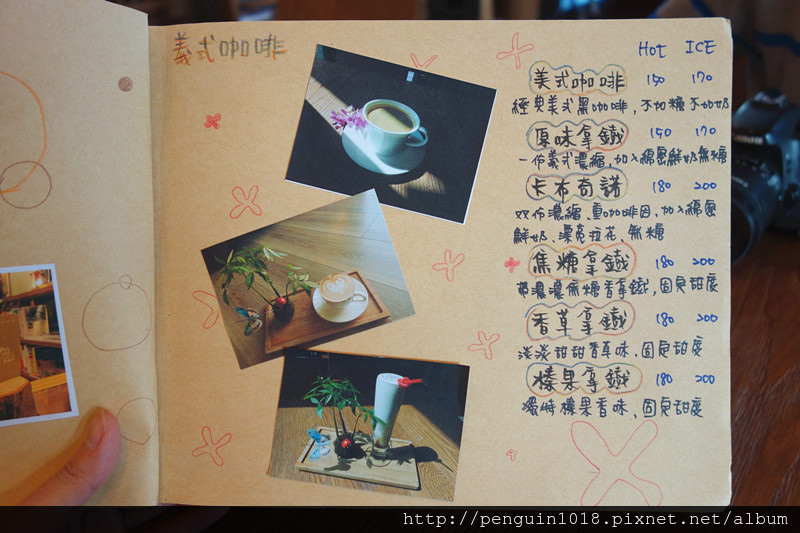 義式咖啡
Hot ICE
美式咖啡 150 170
經典美式黑咖啡,不加糖不加奶
原味拿鐵 150 170
一份義式濃縮,加入綿密鮮奶無糖
卡布奇諾 180 200
双份濃縮.重咖啡因,加入綿密
鮮奶.漂亮拉花.無糖
焦糖拿鐵 180 200
帶濃濃焦糖香拿鐵,固定甜度
香草拿鐵 180 200
淡淡甜甜香草味.固定甜度
榛果拿鐵 180 200
獨特榛果香味,固定甜度
http://penguin1018.pixnet.net/album